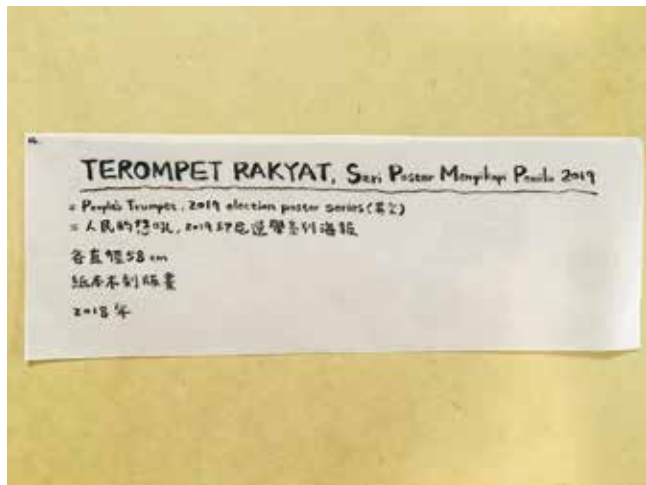 TEROMPET RAKYAT, Seri Poster Menyikapi Pemilu 2019
= People's Trumpet, 2019 election poster series (英文)
= 人民的怒吼, 2019印尼選舉系列海報
各直徑58cm
紙本木刻版畫
2018年